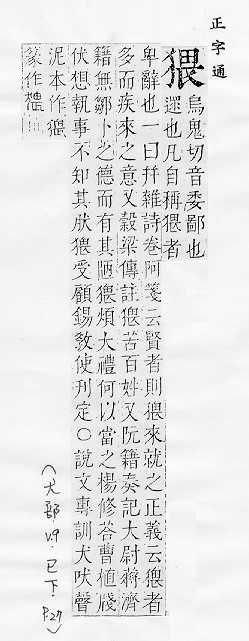 正字通
猥
烏鬼切音委鄙也
遝也凡自稱猥者
卑辭也一曰幷雜詩卷阿箋云賢者則猥來就之正義云猥者
多而疾來之意又穀梁傳註猥苦百姓又阮籍奏記大尉蔣濟
籍無鄒卜之德而有其陋猥煩大禮何以當之楊修荅曹植牋
伏想執事不知其肰猥受顧錫敎使刊定○說文專訓犬吠聲
泥本作猥
篆作
(犬部 V.9. 巳下. P.27)